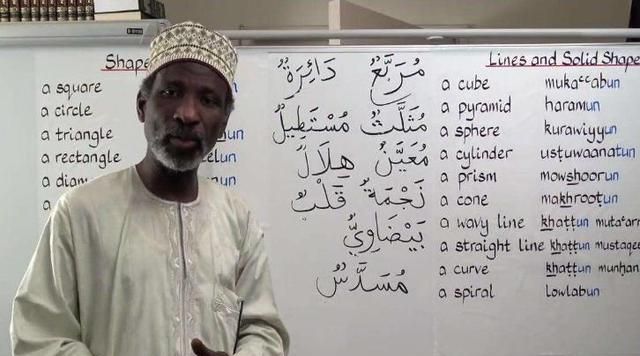 Shape
a square
a circle
a triangle
a rectangle
a diam
a
un
un
elun
un
مُرَبَّعٌ دَائِرَةٌ
مُثَلَّثٌ مُسْتَطِيلٌ
مُعَيَّنٌ هِلَالٌ
نَجْمَةٌ قَلْبٌ
بَيْضَاوِيٌّ
مُسَدَّسٌ
Lines and Solid Shape
a cube mukaᶜᶜabun
a pyramid haramun
a sphere kurawiyyun
a cylinder usṭuwaanatun
a prism mowshoorun
a cone makhrooṭun
a wavy line khaṭṭun mutaᶜarr
a straight line khaṭṭun mustaqee
a curve khaṭṭun munḥan
a spiral lowlabun